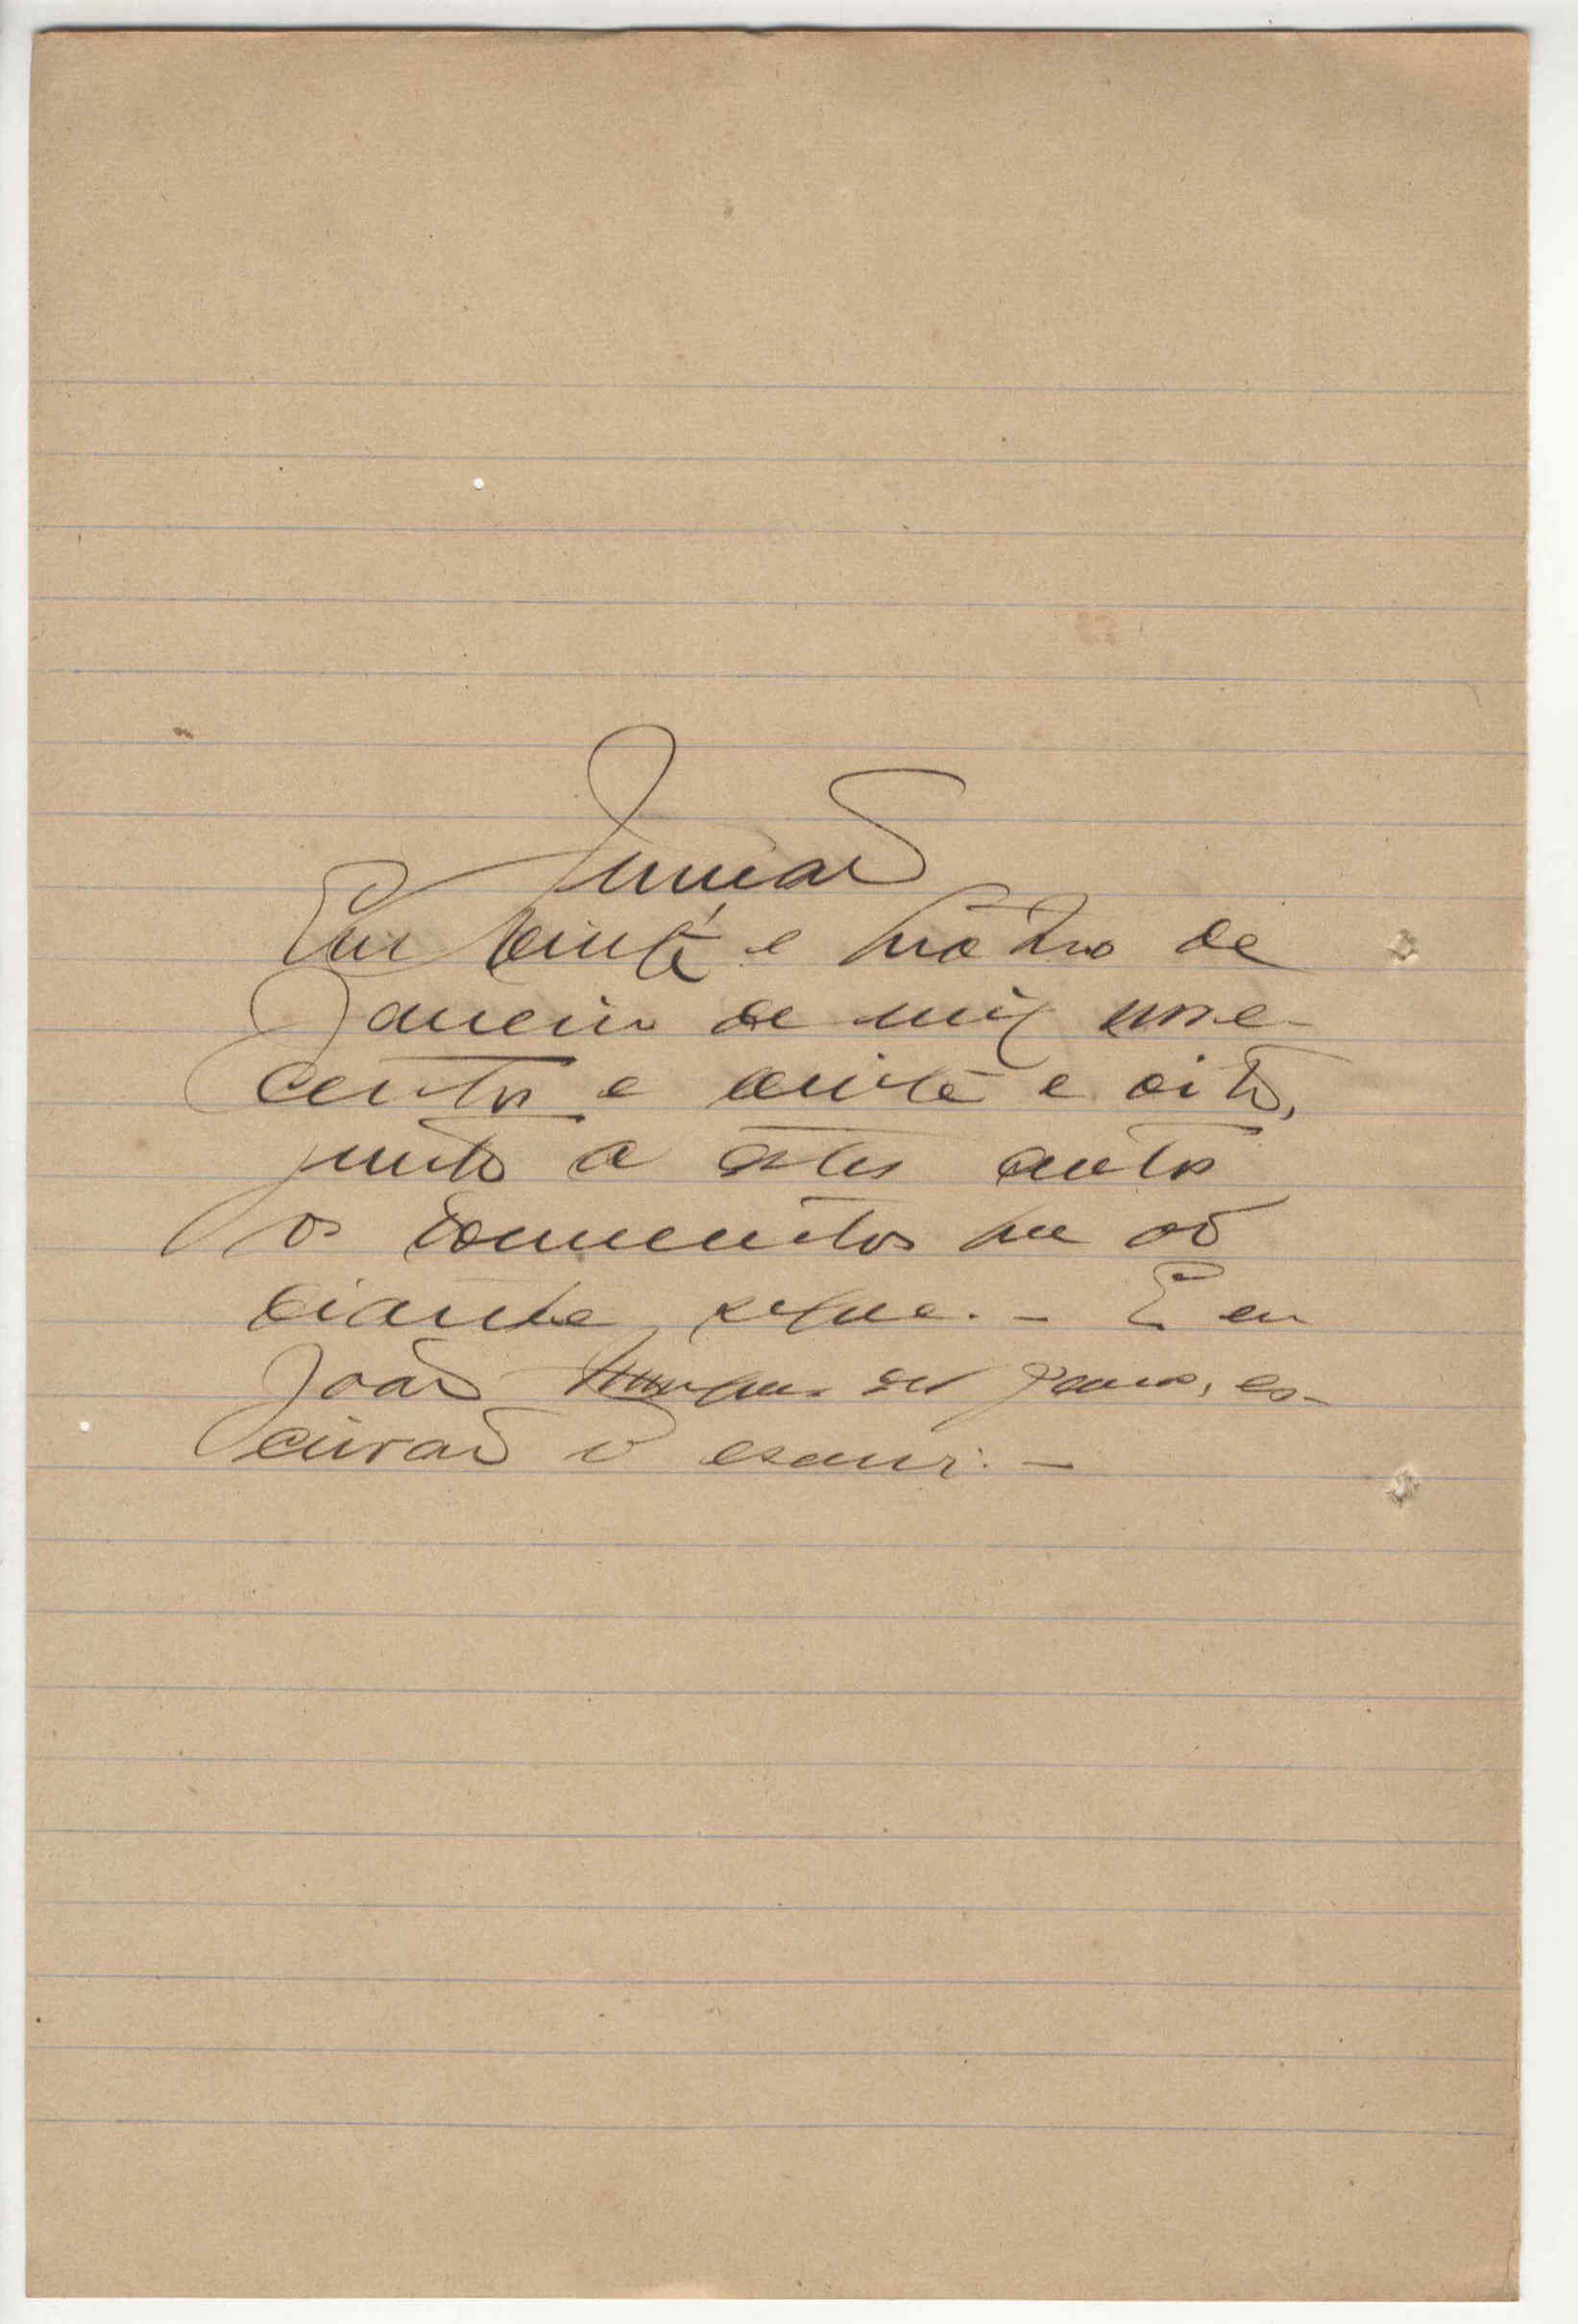 Juncção
Em vinte e quatro de
Janeiro de mil nove-
centos e vinte e oito,
junto a estes autos
os documentos que ao
diante segue. - E eu
João dos, es-
crivão o escrevi. -